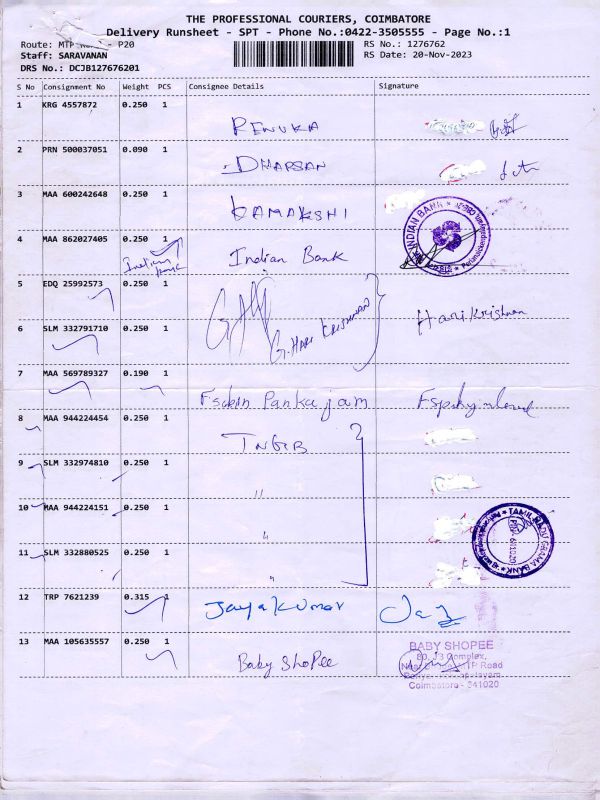 THE PROFESSIONAL COURIERS, COIMBATORE
Delivery Runsheet - SPT - Phone No.:0422-3505555 - Page No.:1
Route: MTP - P20 RS No.: 1276762
Staff: SARAVANAN RS Date: 20-Nov-2023
DRS No.: DCJB127676201
S No Consignment No Weight PCS Consignee Details Signature
1 KRG 4557872 0.250 1
RENUKA
2 PRN 500037051 0.090 1
DHARSAN
3 MAA 600242648 0.250 1
KAMAKSHI
INDIAN BANK
4 MAA 862027405 0.250 1
Indian Bank Indian Bank
5 EDQ 25992573 0.250 1
G. HARI KRISHNAN Harikrishnan
6 SLM 332791710 0.250 1
7 MAA 569789327 0.190 1
Pankajam
8 MAA 944224454 0.250 1
TNGB
9 SLM 332974810 0.250 1
"
10 MAA 944224151 0.250 1
"
TAMIL NADU GRAMA BANK
11 SLM 332880525 0.250 1
"
12 TRP 7621239 0.315 1
Jayakumar Jay
13 MAA 105635557 0.250 1
Baby Shopee
BABY SHOPEE
Complex,
MTP Road
Coimbatore - 641020